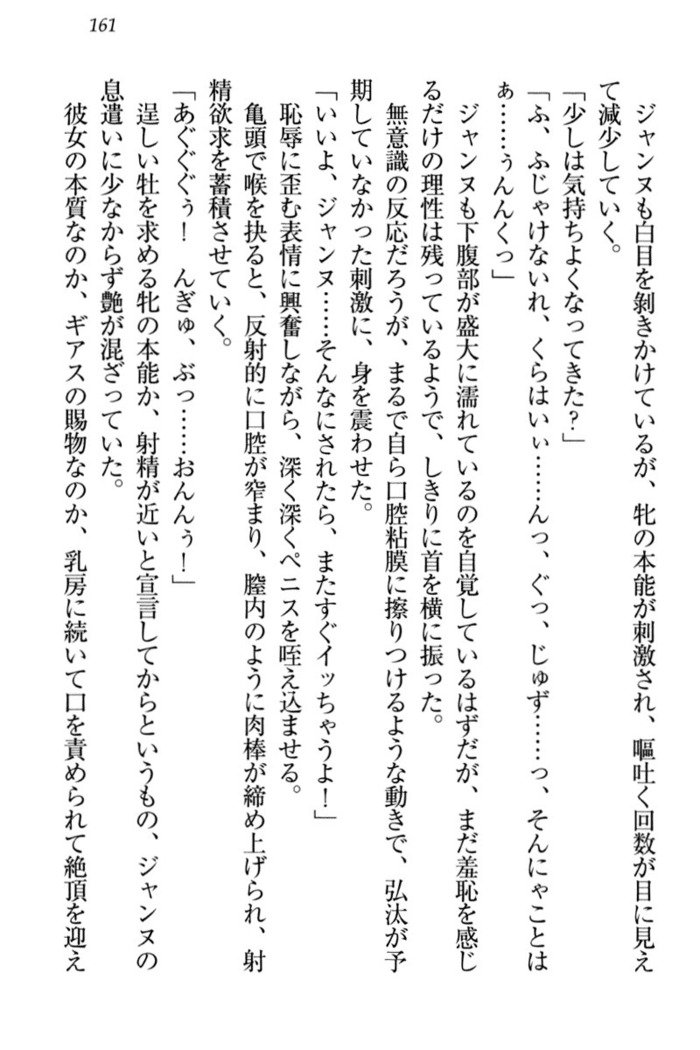 161
ジャンヌも白目を剝きかけているが、牝の本能が刺激され、嘔吐く回数が目に見え
て減少していく。
「少しは気持ちよくなってきた？」
「ふ、ふじゃけないれ、くらはいぃ……んっ、ぐっ、じゅず……っ、そんにゃことは
ぁ……ぅんんくっ」
ジャンヌも下腹部が盛大に濡れているのを自覚しているはずだが、まだ羞恥を感じ
るだけの理性は残っているようで、しきりに首を横に振った。
無意識の反応だろうが、まるで自ら口腔粘膜に擦りつけるような動きで、弘汰が予
期していなかった刺激に、身を震わせた。
「いいよ、ジャンヌ……そんなにされたら、またすぐイッちゃうよ！」
恥辱に歪む表情に興奮しながら、深く深くペニスを咥え込ませる。
亀頭で喉を抉ると、反射的に口腔が窄まり、膣内のように肉棒が締め上げられ、射
精欲求を蓄積させていく。
「あぐぐぐぅ！　んぎゅ、ぶっ……おんんぅ！」
逞しい牡を求める牝の本能か、射精が近いと宣言してからというもの、ジャンヌの
息遣いに少なからず艶が混ざっていた。
彼女の本質なのか、ギアスの賜物なのか、乳房に続いて口を責められて絶頂を迎え